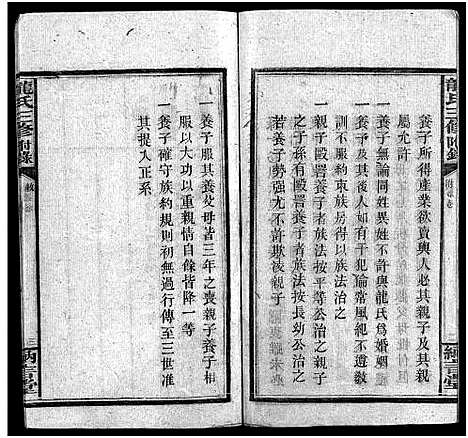 龍氏三修附錄
養子所得產業欲賣與人必其親子
屬允許
一養子無論同姓異姓不許與龍氏爲婚姻
一養子及其後人如有干犯倫常風紀不遵教
訓不服約束族房得以族法治之
一親子毆詈養子者族法按平等公治之親子
之子孫有毆詈養子者族法按長幼公治之
若養子勢强尤不得欺凌親子
納言堂
一養子服其養父母皆三年之喪親子養子相
服以大功以重親情自餘皆降一等
一養子確守族約規則初無過行傳至三世准
其提入正系
龍氏三修附錄
三
納言堂